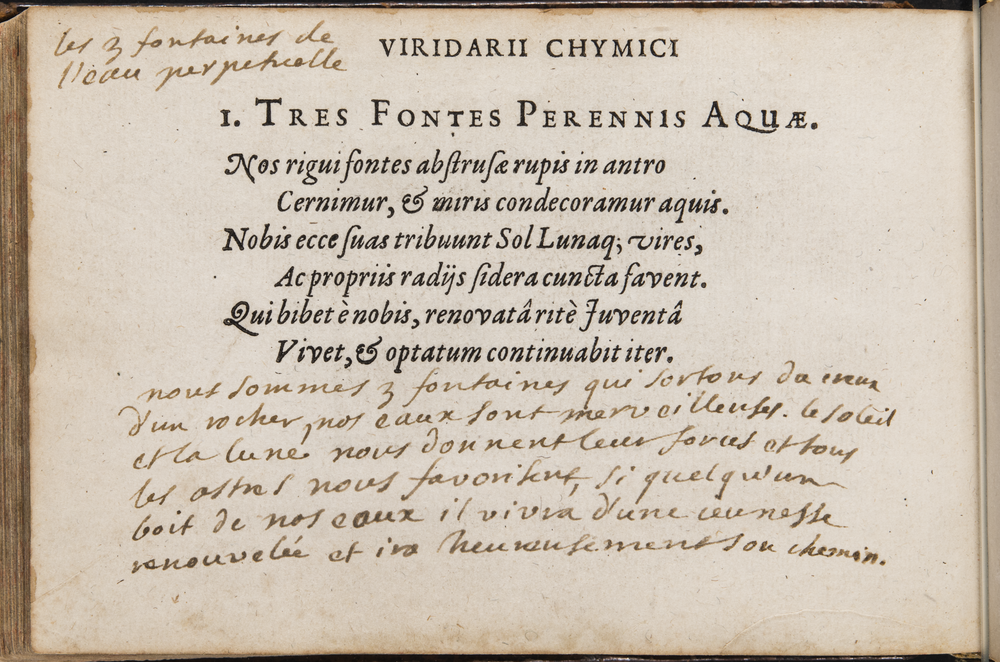 les 3 fontaines de
l'eau perpetuelle
VIRIDARII CHYMICI
1. TRES FONTES PERENNIS AQUÆ.
Nos rigui fontes abſtruſæ rupis in antro
Cernimur, & miris condecoramur aquis.
Nobis ecce ſuas tribuunt Sol Lunaq; vires,
Ac propriis radijs ſidera cuncta favent.
Qui bibet è nobis, renovatâ ritè Juventâ
Vivet, & optatum continuabit iter.
nous sommes 3 fontaines qui sortons du creux
d'un rocher, nos eaux sont merveilleuses. le soleil
et la lune nous donnent leur forces et tous
les astres nous favorisent, si quelqu'un
boit de nos eaux il vivra d'une ieunesse
renouvelée et ira heureusement son chemin.